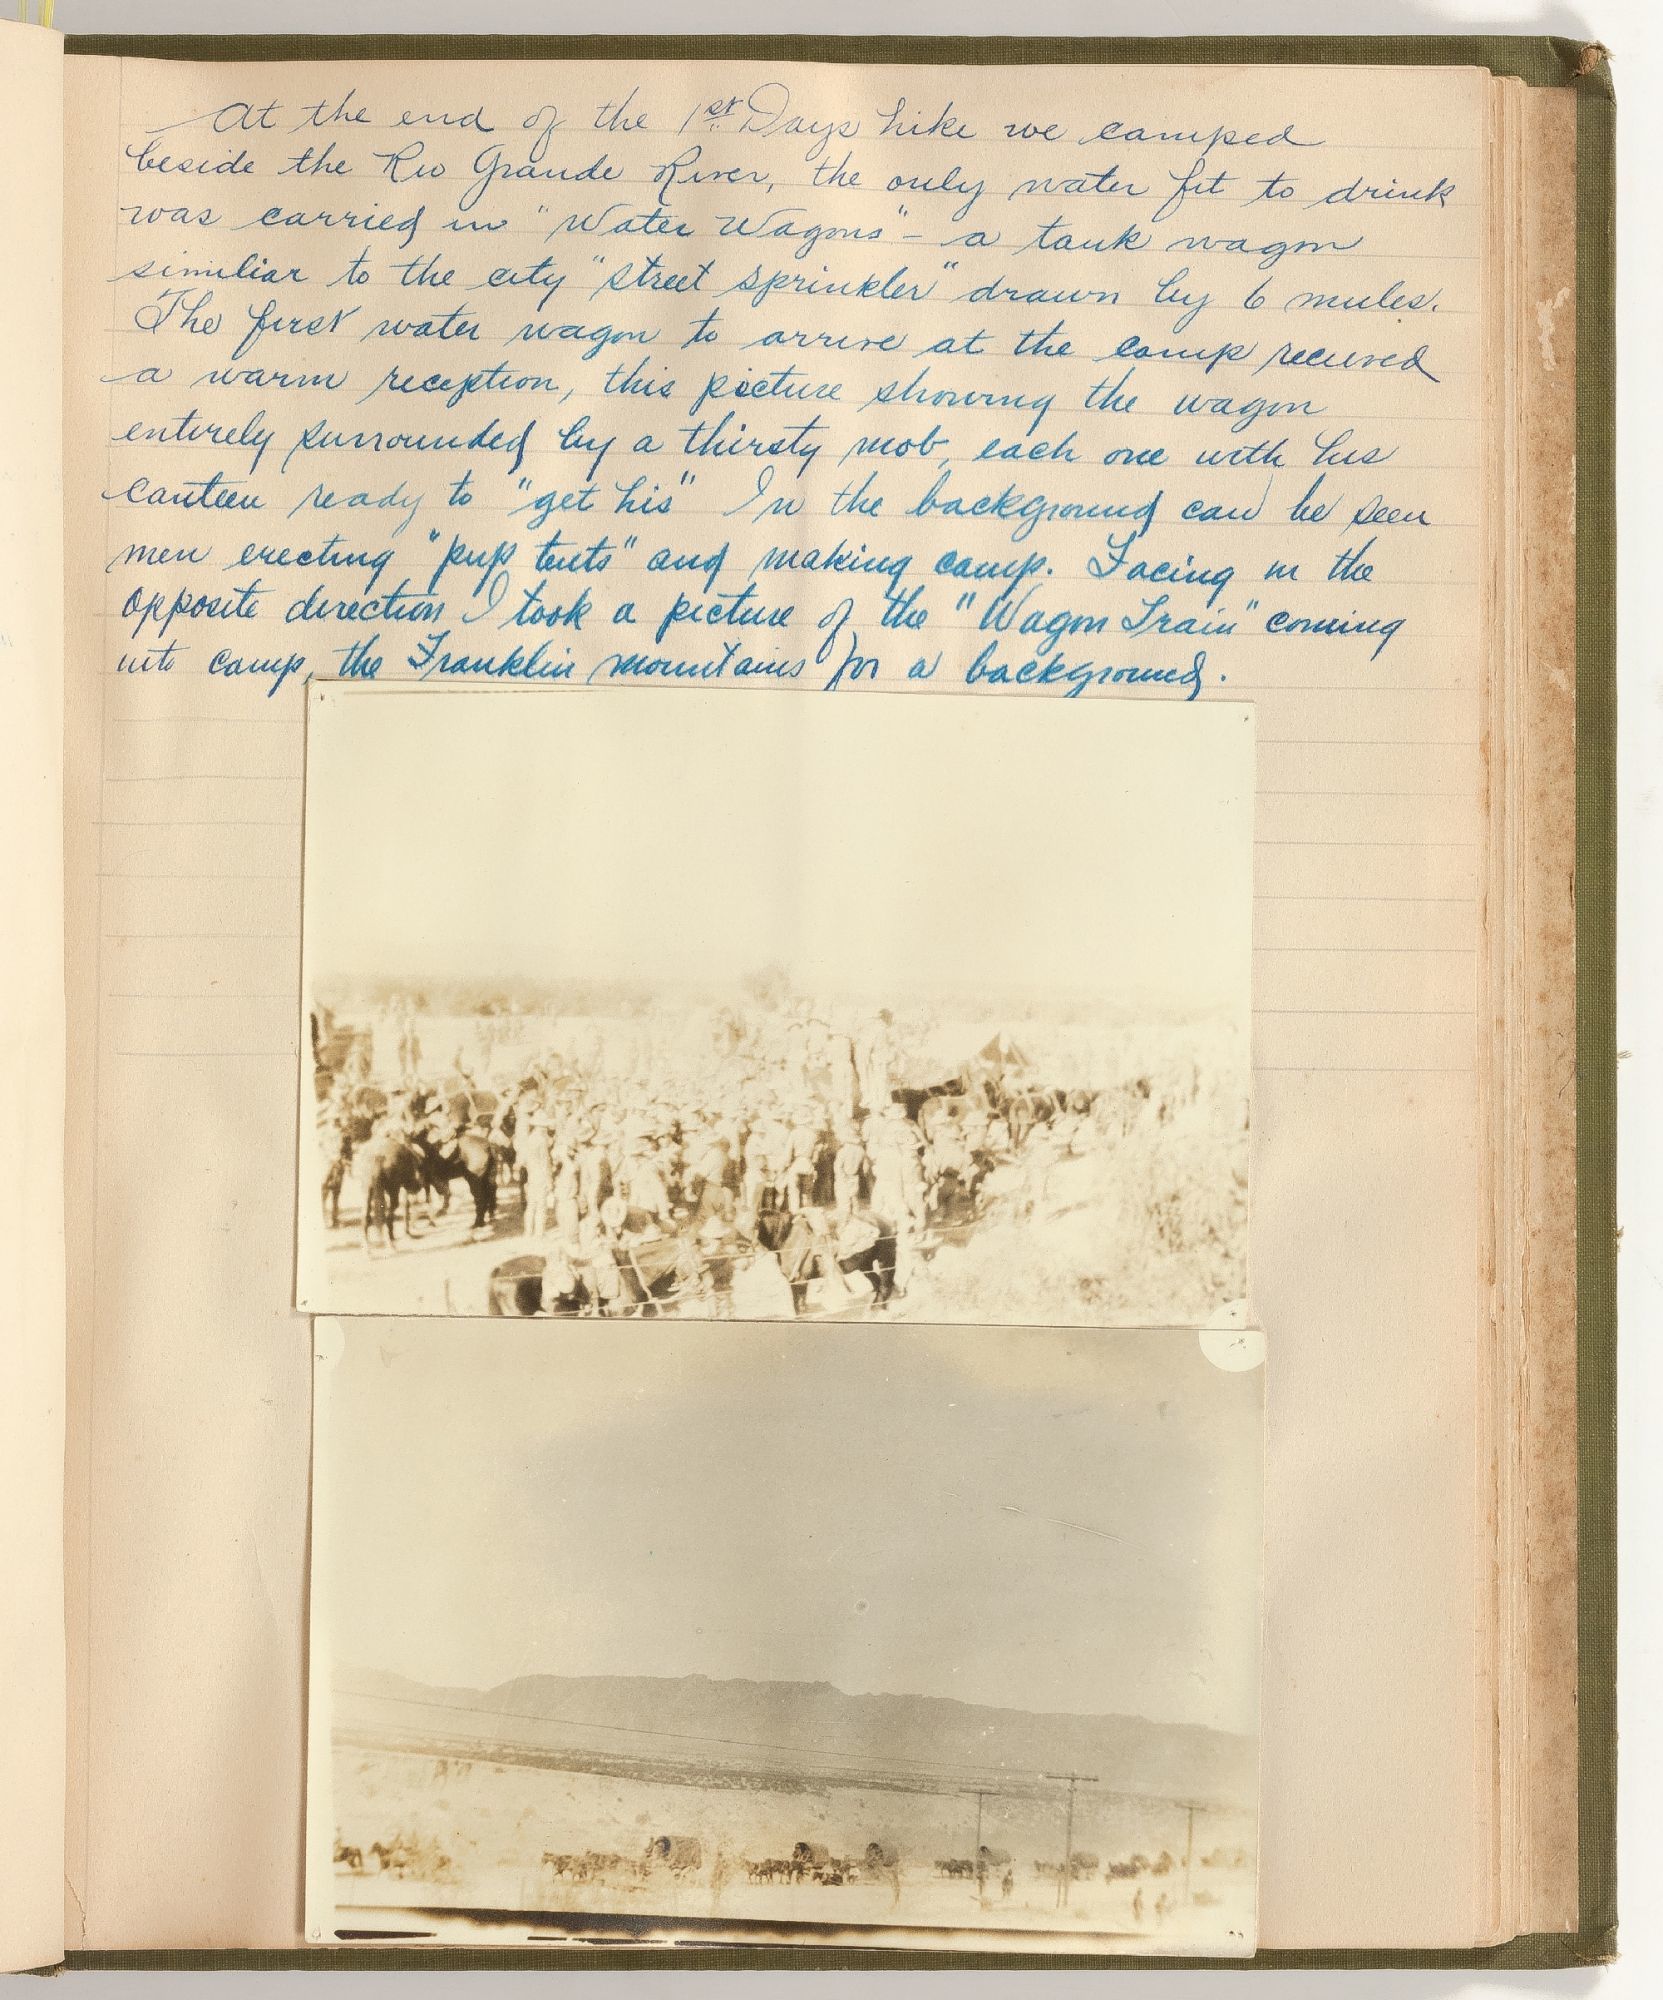 At the end of the 1st Days hike we camped
beside the Rio Grande River, the only water fit to drink
was carried in "Water Wagons" - a tank wagon
similiar to the city "street sprinkler" drawn by 6 mules.
The first water wagon to arrive at the camp received
a warm reception, this picture showing the wagon
entirely surrounded by a thirsty mob, each one with his
canteen ready to "get his" In the background can be seen
men erecting "pup tents" and making camp. Facing in the
opposite direction I took a picture of the "Wagon Train" coming
into camp, the Franklin mountains for a background.